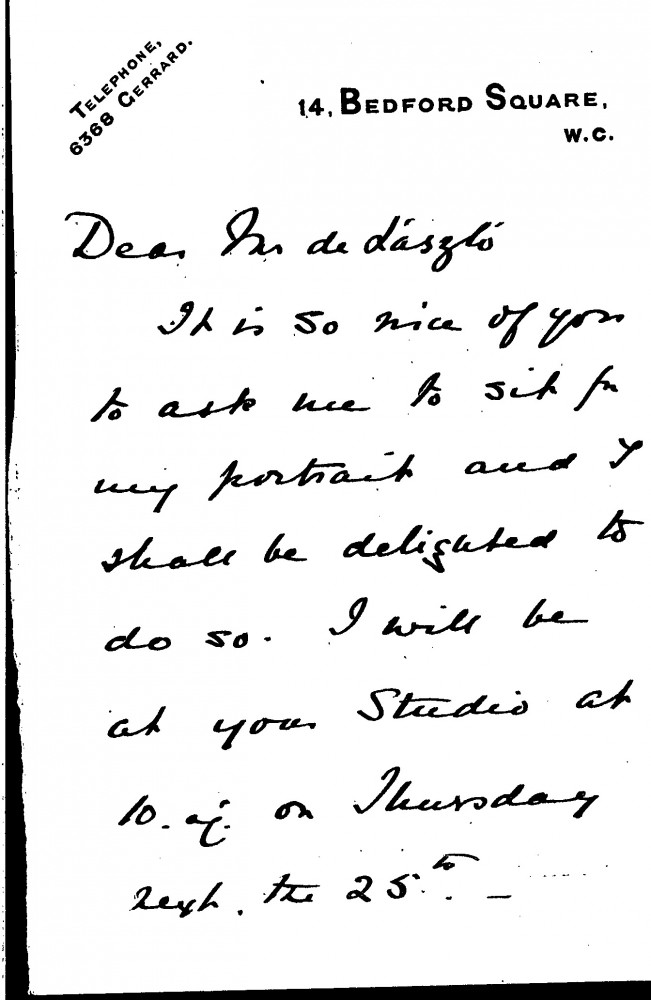 TELEPHONE,
6368 GERRARD.
14, BEDFORD SQUARE,
W.C.
Dear Mr de László
It is so nice of you
to ask me to sit for
my portrait and I
shall be delighted to
do so. I will be
at your Studio at
10. on Thursday
next. the 25th. –